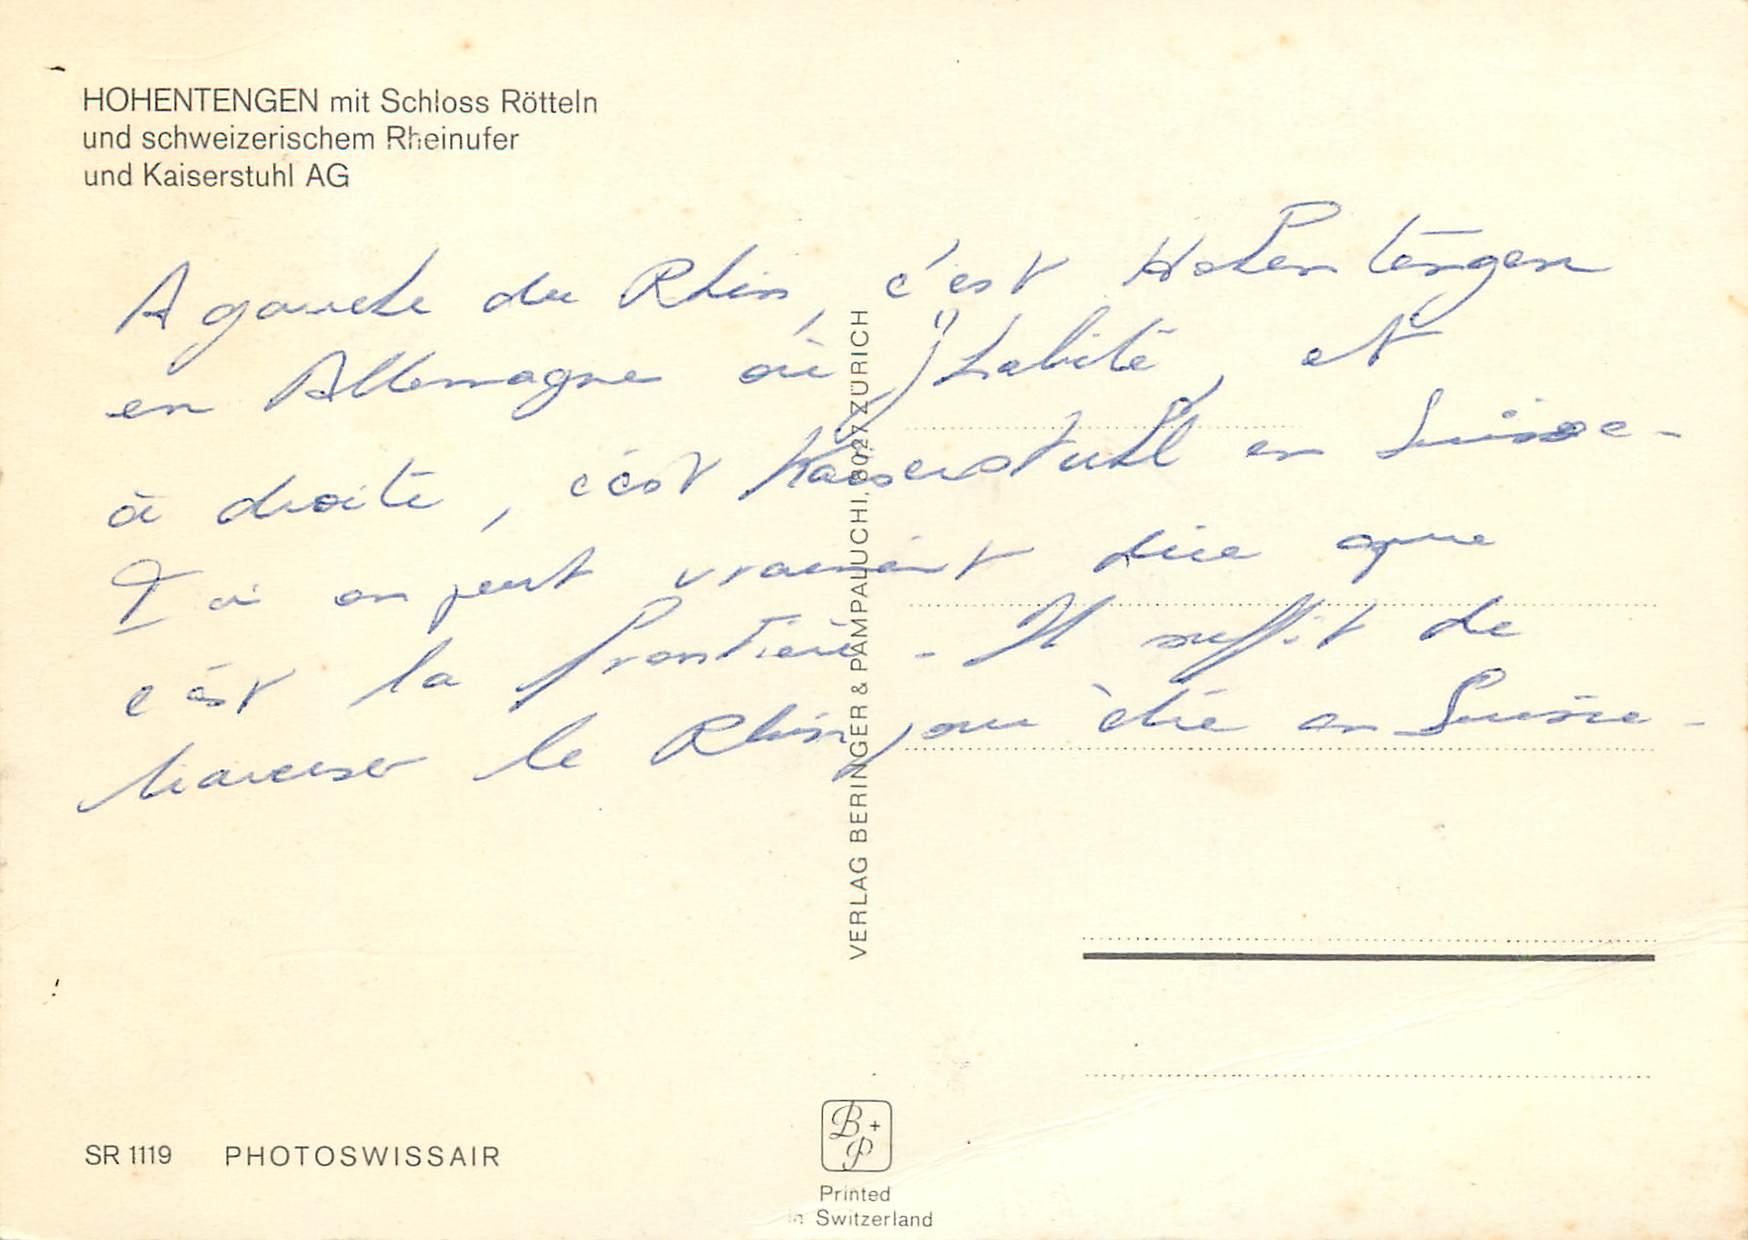 HOHENTENGEN mit Schloss Rötteln
und schweizerischem Rheinufer
und Kaiserstuhl AG
A gauche du Rhin, c'est Hohentengen
en Allemagne où j'habite, et
à droite, c'est Kaiserstuhl en Suisse -
Là on peut vraiment dire que
c'est la frontière - Il suffit de
traverser le Rhin pour être en Suisse -
VERLAG BERINGER & PAMPALUCHI, 8027 ZÜRICH
SR 1119 PHOTOSWISSAIR
B+P
Printed
in Switzerland